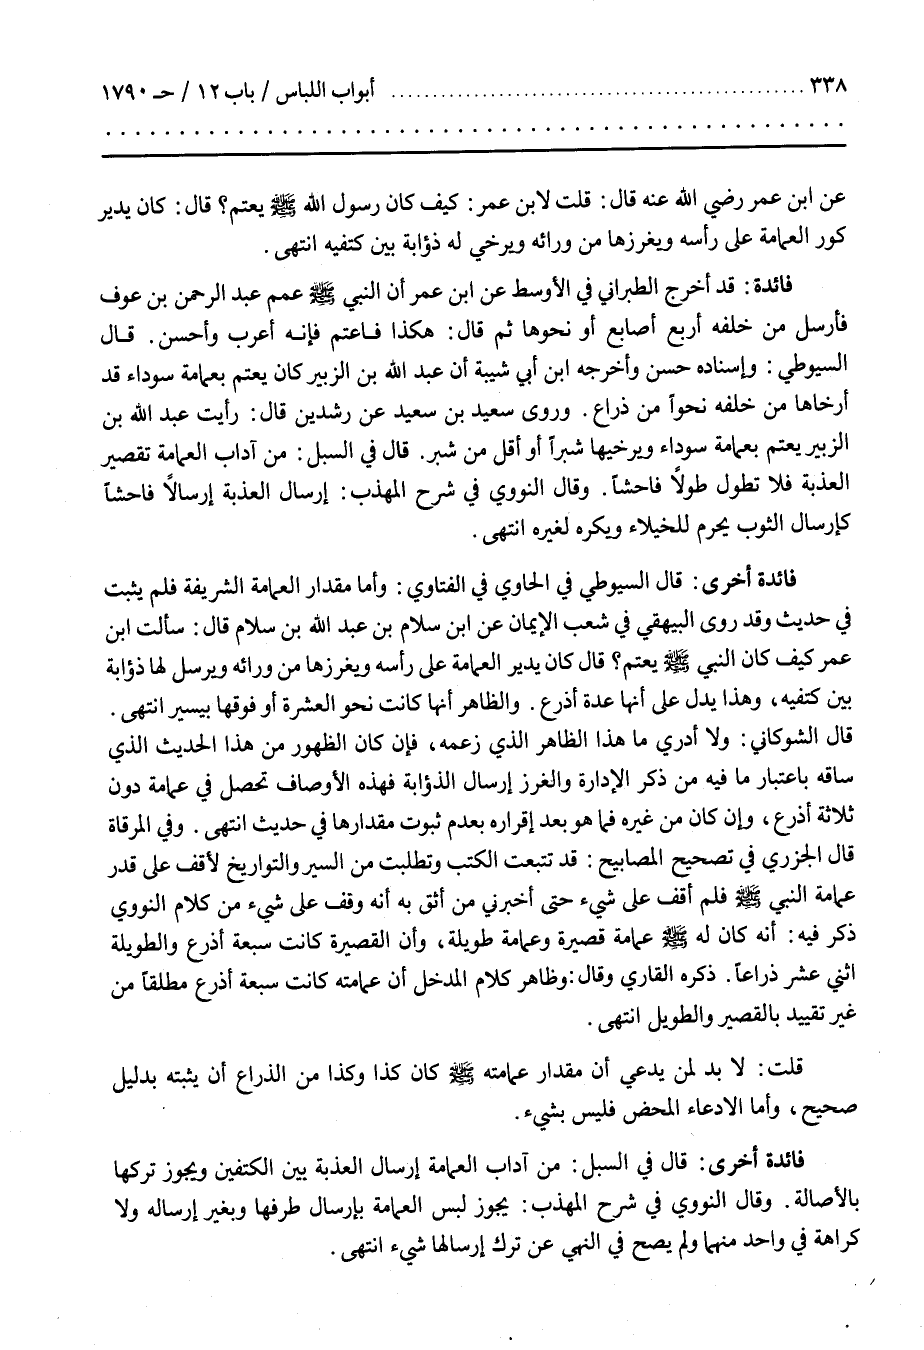 ٣٣٨ ................................................ أبواب اللباس / باب ١٢ / حـ ١٧٩٠
عن ابن عمر رضي الله عنه قال: قلت لابن عمر: كيف كان رسول الله ﷺ يعتم؟ قال: كان يدير
كور العمامة على رأسه ويغرزها من ورائه ويرخي له ذؤابة بين كتفيه انتهى.
فائدة: قد أخرج الطبراني في الأوسط عن ابن عمر أن النبي ﷺ عمم عبد الرحمن بن عوف
فأرسل من خلفه أربع أصابع أو نحوها ثم قال: هكذا فاعتم فإنه أعرب وأحسن. قال
السيوطي: وإسناده حسن وأخرجه ابن أبي شيبة أن عبد الله بن الزبير كان يعتم بعمامة سوداء قد
أرخاها من خلفه نحواً من ذراع. وروى سعيد بن سعيد عن رشدين قال: رأيت عبد الله بن
الزبير يعتم بعمامة سوداء ويرخيها شبراً أو أقل من شبر. قال في السبل: من آداب العمامة تقصير
العذبة فلا تطول طولًا فاحشاً. وقال النووي في شرح المهذب: إرسال العذبة إرسالًا فاحشاً
كإرسال الثوب يحرم للخيلاء ويكره لغيره انتهى.
فائدة أخرى: قال السيوطي في الحاوي في الفتاوي: وأما مقدار العمامة الشريفة فلم يثبت
في حديث وقد روى البيهقي في شعب الإيمان عن ابن سلام بن عبد الله بن سلام قال: سألت ابن
عمر كيف كان النبي ﷺ يعتم؟ قال كان يدير العمامة على رأسه ويغرزها من ورائه ويرسل لها ذؤابة
بين كتفيه، وهذا يدل على أنها عدة أذرع. والظاهر أنها كانت نحو العشرة أو فوقها بيسير انتهى.
قال الشوكاني: ولا أدري ما هذا الظاهر الذي زعمه، فإن كان الظهور من هذا الحديث الذي
ساقه باعتبار ما فيه من ذكر الإدارة والغرز إرسال الذؤابة فهذه الأوصاف تحصل في عمامة دون
ثلاثة أذرع، وإن كان من غيره فما هو بعد إقراره بعدم ثبوت مقدارها في حديث انتهى. وفي المرقاة
قال الجزري في تصحيح المصابيح: قد تتبعت الكتب وتطلبت من السير والتواريخ لأقف على قدر
عمامة النبي ﷺ فلم أقف على شيء حتى أخبرني من أثق به أنه وقف على شيء من كلام النووي
ذكر فيه: أنه كان له ﷺ عمامة قصيرة وعمامة طويلة، وأن القصيرة كانت سبعة أذرع والطويلة
اثني عشر ذراعاً. ذكره القاري وقال: وظاهر كلام المدخل أن عمامته كانت سبعة أذرع مطلقاً من
غير تقييد بالقصير والطويل انتهى.
قلت: لا بد لمن يدعي أن مقدار عمامته ﷺ كان كذا وكذا من الذراع أن يثبته بدليل
صحيح، وأما الادعاء المحض فليس بشيء.
فائدة أخرى: قال في السبل: من آداب العمامة إرسال العذبة بين الكتفين ويجوز تركها
بالأصالة. وقال النووي في شرح المهذب: يجوز لبس العمامة بإرسال طرفها وبغير إرساله ولا
كراهة في واحد منهما ولم يصح في النهي عن ترك إرسالها شيء انتهى.